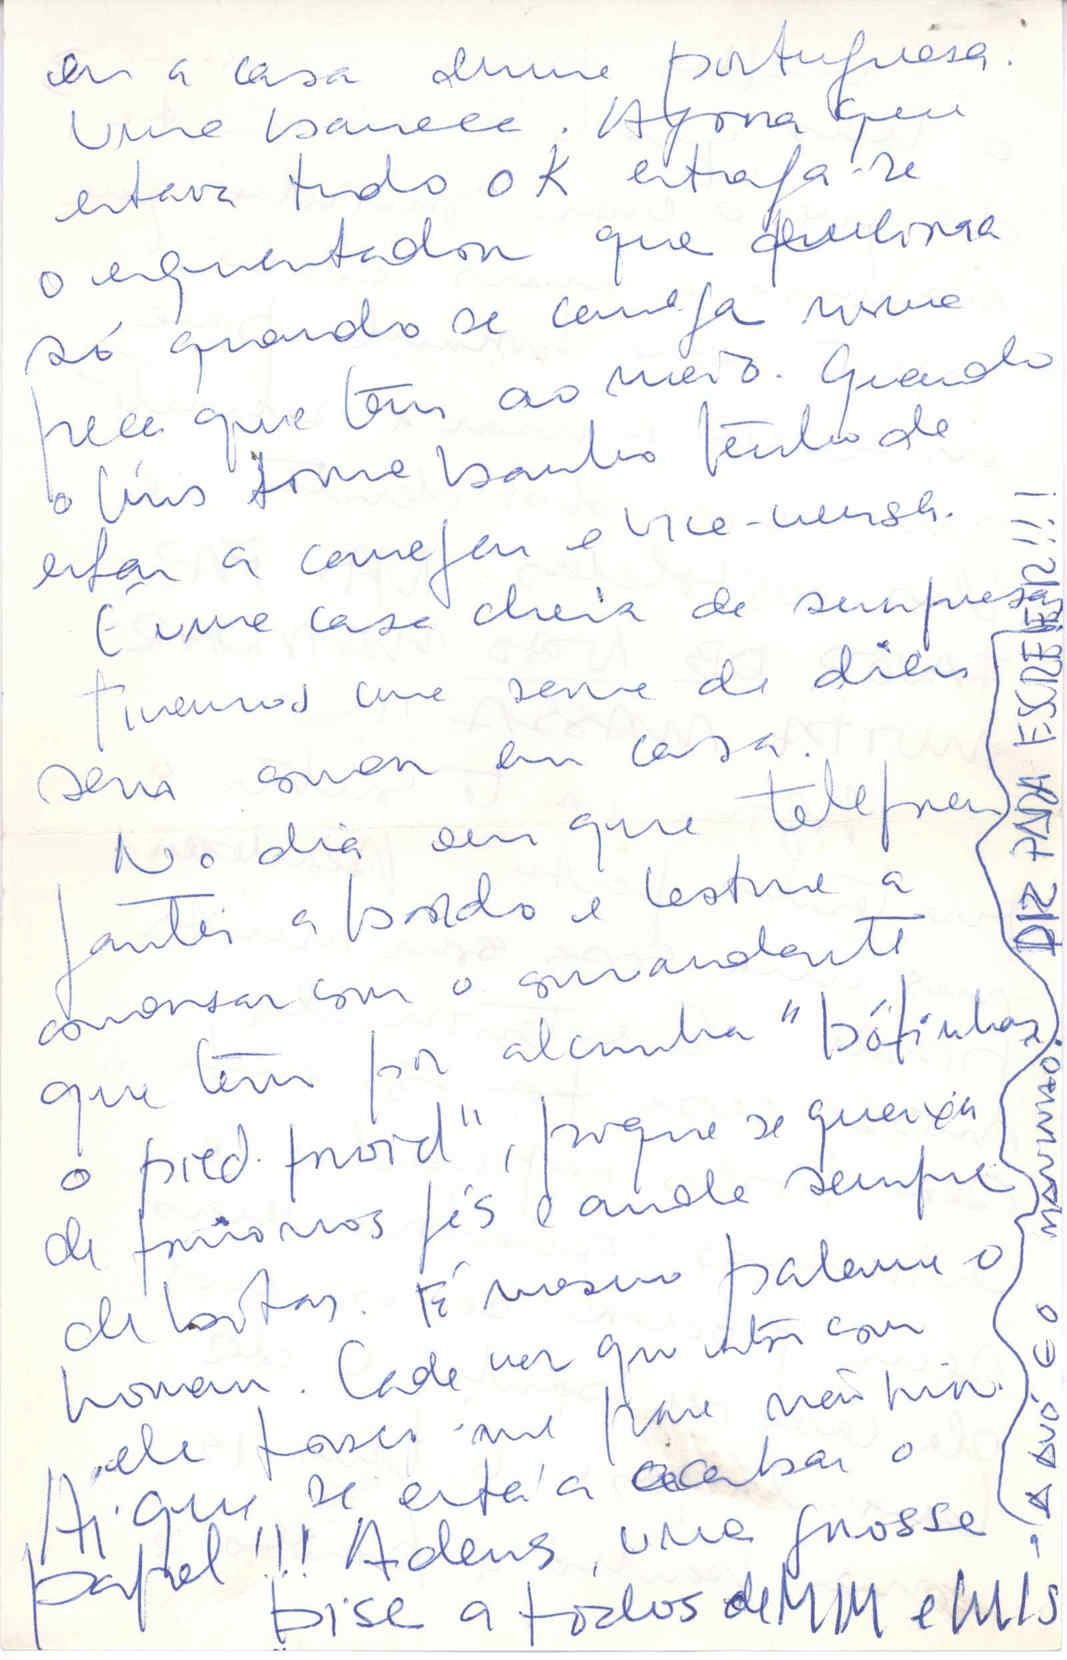 em a casa dume portuguesa.
Uma bareca. Agora que
estava tudo OK estraga-se
o esquentador que
só quando se carrega numa
peça que tem ao meio. Quando
o Luis toma banho tenho de
estar a carregar e vice-versa.
É uma casa cheia de surpresas
tivemos uma serie de dias
sem em casa.
No dia em que telefonei
jantei a bordo e estive a
conversar com o comandante
que tem por alcunha "bótinhas
o pied froid", porque se queixa
de frio nos pés e anda sempre
de botas. É mesmo o
homem. Cada vez que estou com
ele torço-me para não rir.
Ai que se está a acabar o
papel!!! Adeus, uma grosse
bise a todos de MIM e LUIS
- A AVÓ E O MANINHO. DIZ PARA ESCREVER!!!